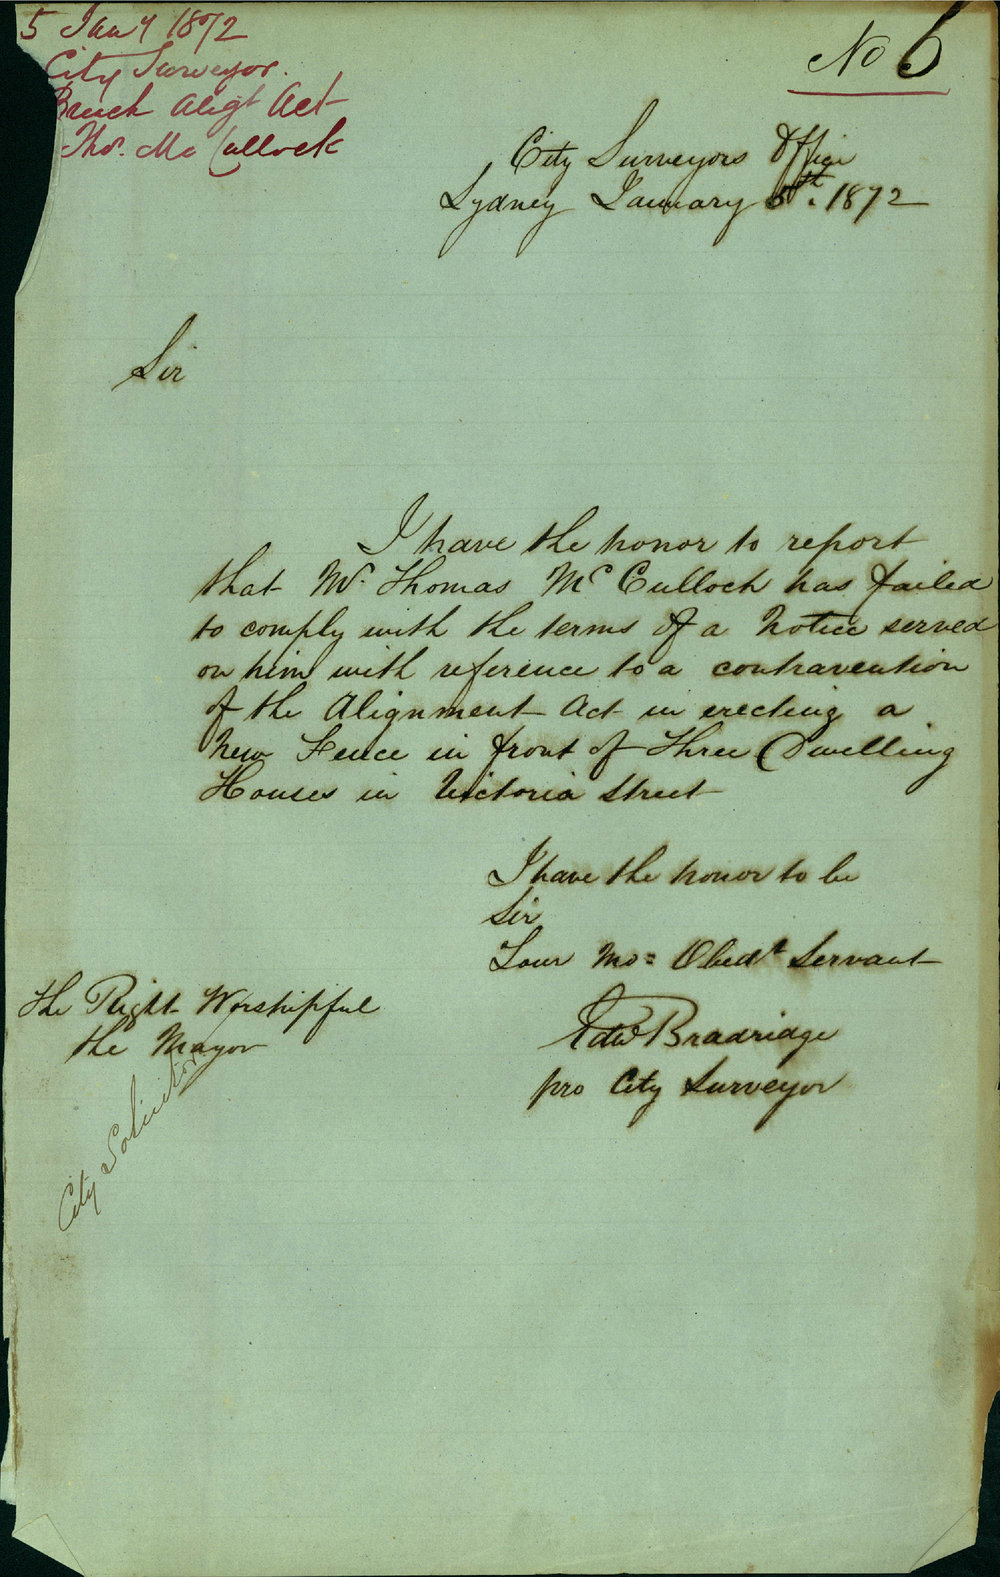 5 Jany 1872
City Surveyor.
Breach Aligt Act
Thos. Mc Cullock
No 6
City Surveyors Office
Sydney January 5th. 1872
Sir
I have the honor to report
that Mr. Thomas Mc Culloch has failed
to comply with the terms of a Notice served
on him with reference to a contravention
of the Alignment Act in erecting a
New Fence in front of Three Dwelling
Houses in Victoria Street
I have the honor to be
Sir
Your Mo= Obedt Servant
Edwd Bradridge
pro City Surveyor
The Right Worshipful
the Mayor
City Solicitor